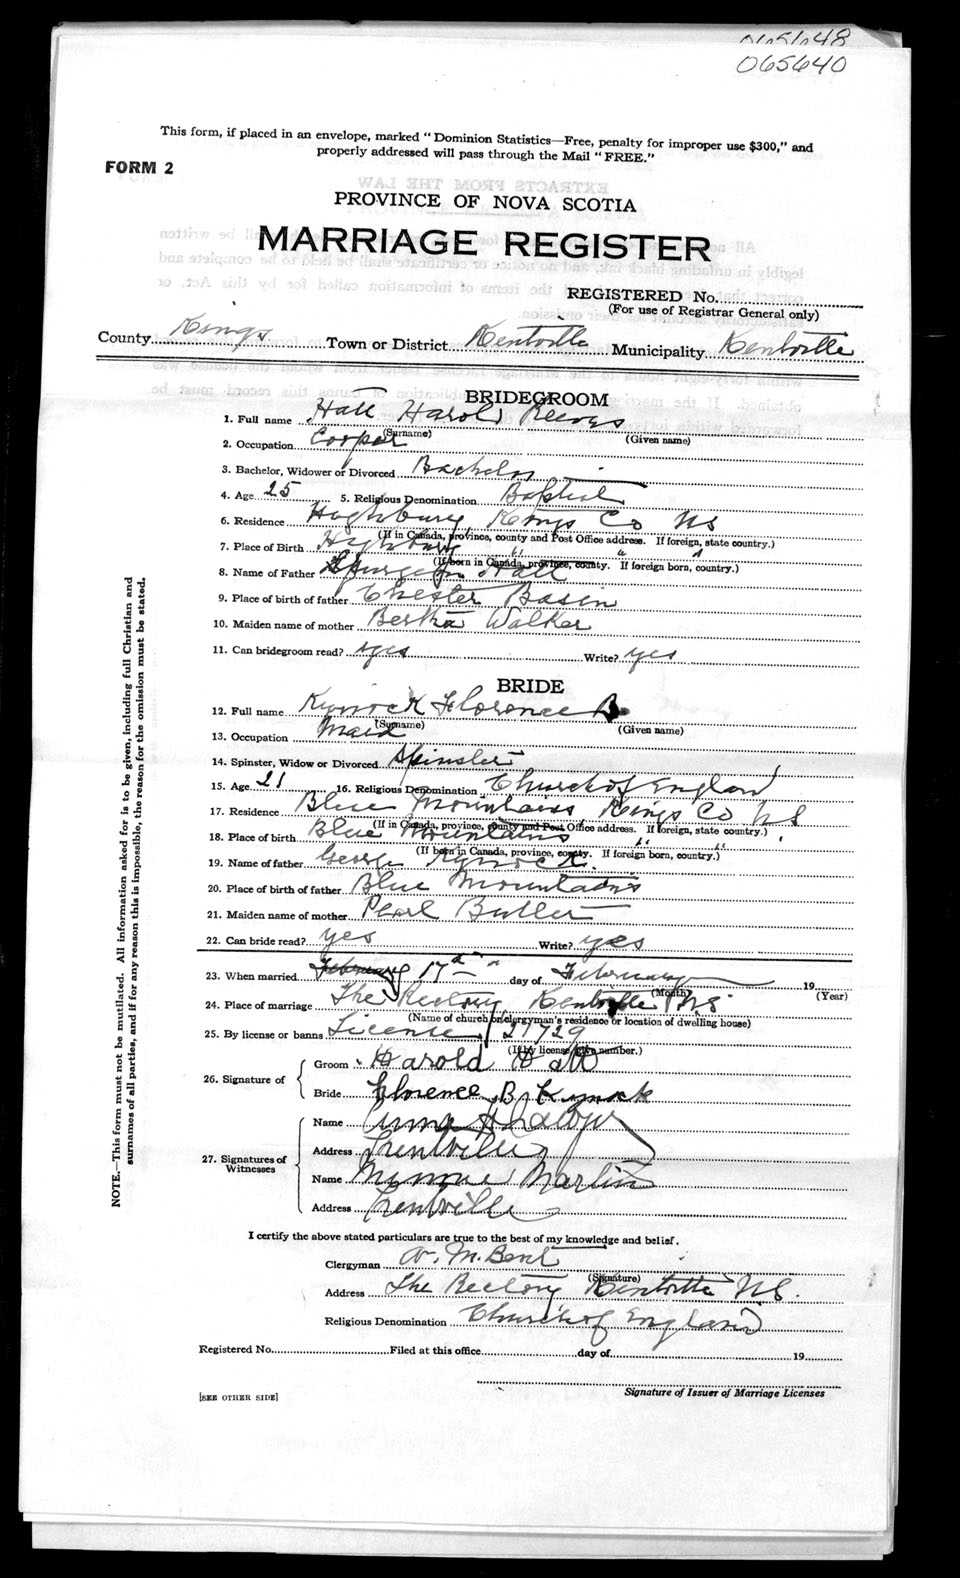 065648
065640
This form, if placed in an envelope, marked "Dominion Statistics—Free, penalty for improper use $300," and
properly addressed will pass through the Mail "FREE."
FORM 2
PROVINCE OF NOVA SCOTIA
MARRIAGE REGISTER
REGISTERED No.
(For use of Registrar General only)
County Kings Town or District Kentville Municipality Kentville
BRIDEGROOM
1. Full name Hall Harold Reeves
(Surname) (Given name)
2. Occupation Cooper
3. Bachelor, Widower or Divorced Bachelor
4. Age 25 5. Religious Denomination Baptist
6. Residence Highbury Kings Co NS
(If in Canada, province, county and Post Office address. If foreign, state country.)
7. Place of Birth Highbury " " "
(If born in Canada, province, county. If foreign born, country.)
8. Name of Father Spurgeon Hall
9. Place of birth of father Chester Basin
10. Maiden name of mother Bertha Walker
11. Can bridegroom read? yes Write? yes
BRIDE
12. Full name Kynock Florence B
(Surname) (Given name)
13. Occupation Maid
14. Spinster, Widow or Divorced Spinster
15. Age 21 16. Religious Denomination Church of England
17. Residence Blue Mountains Kings Co NS
(If in Canada, province, county and Post Office address. If foreign, state country.)
18. Place of birth Blue Mountains " "
(If born in Canada, province, county. If foreign born, country.)
19. Name of father George Kynock
20. Place of birth of father Blue Mountains
21. Maiden name of mother Pearl Butler
22. Can bride read? yes Write? yes
23. When married February 17th day of February 19
(Month) (Year)
24. Place of marriage The Rectory Kentville NS
(Name of church or clergyman's residence or location of dwelling house)
25. By license or banns License 21729
(If by license give number.)
26. Signature of Groom Harold Hall
Bride Florence B. Kynock
27. Signatures of Witnesses Name Anna
Address Kentville
Name Minnie Martin
Address Kentville
I certify the above stated particulars are true to the best of my knowledge and belief.
Clergyman W. M. Bent
(Signature)
Address The Rectory Kentville NS.
Religious Denomination Church of England
Registered No. Filed at this office day of 19
Signature of Issuer of Marriage Licenses
[SEE OTHER SIDE]
NOTE.—This form must not be mutilated. All information asked for is to be given, including full Christian and
surnames of all parties, and if for any reason this is impossible, the reason for the omission must be stated.